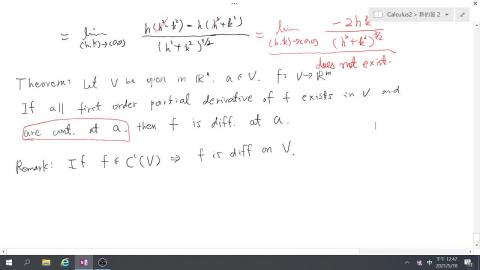 Calculus2 > 新的節 2
= lim_{(h,k)→(0,0)} \frac{h(h²-k²) - h(h²+k²)}{(h²+k²)^{3/2}} = lim_{(h,k)→(0,0)} \frac{-2hk²}{(h²+k²)^{3/2}}
does not exist.
Theorem: Let V be open in ℝⁿ. a∈V. f: V→ℝᵐ
If all first order partial derivative of f exists in V and
are cont. at a. then f is diff. at a.
Remark: If f∈C¹(V) ⇒ f is diff on V.
下午 12:47
2021/5/10